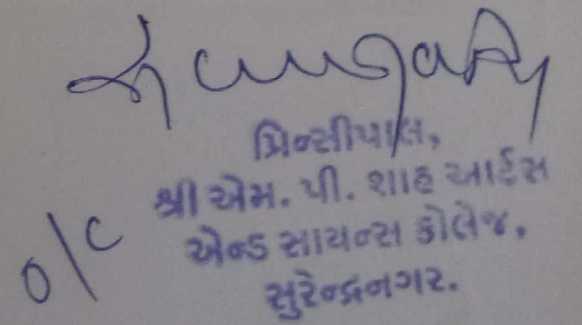 પ્રિન્સીપાલ,
શ્રી એમ. પી. શાહ આર્ટસ
એન્ડ સાયન્સ કોલેજ,
સુરેન્દ્રનગર.
O/C